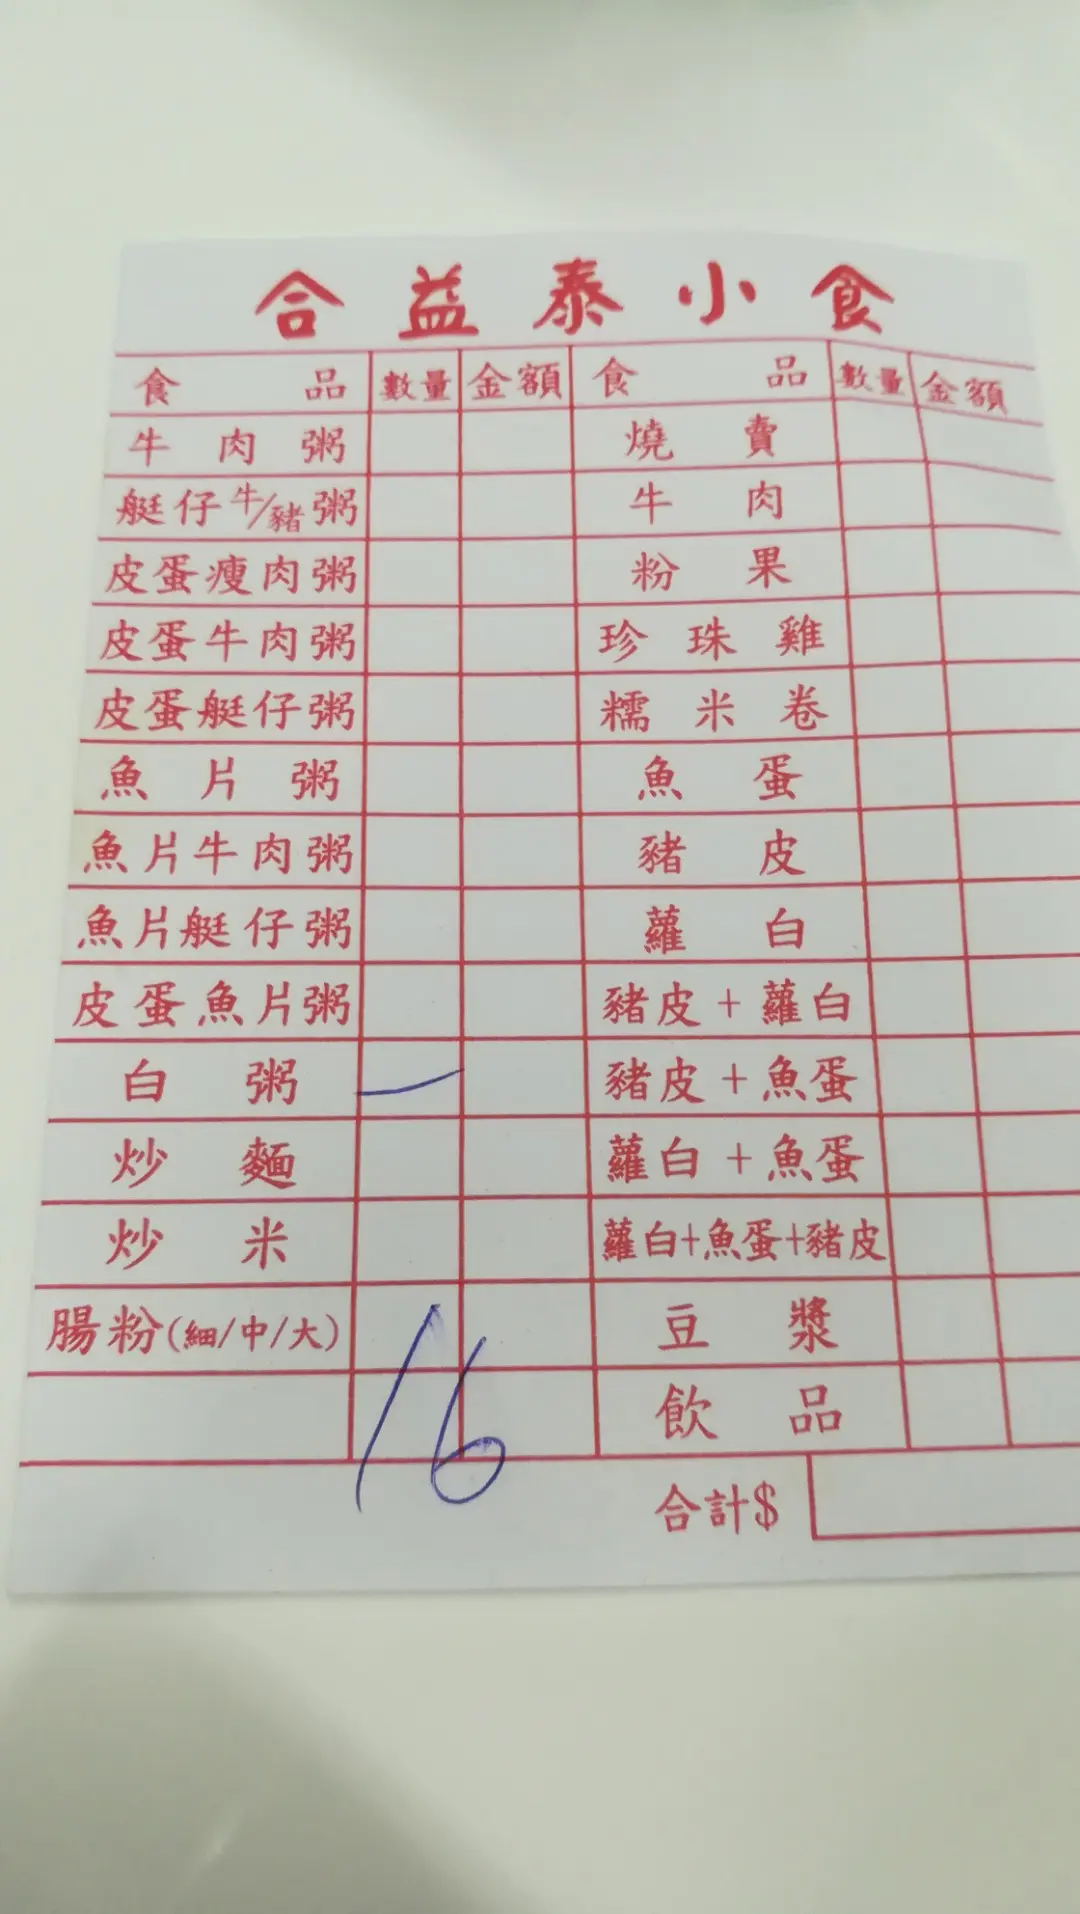 合益泰小食
食品 數量 金額 食品 數量 金額
牛肉粥 燒賣
艇仔牛/豬粥 牛肉
皮蛋瘦肉粥 粉果
皮蛋牛肉粥 珍珠雞
皮蛋艇仔粥 糯米卷
魚片粥 魚蛋
魚片牛肉粥 豬皮
魚片艇仔粥 蘿白
皮蛋魚片粥 豬皮+蘿白
白粥 一 豬皮+魚蛋
炒麵 蘿白+魚蛋
炒米 蘿白+魚蛋+豬皮
腸粉(細/中/大) 豆漿
16 飲品
合計$